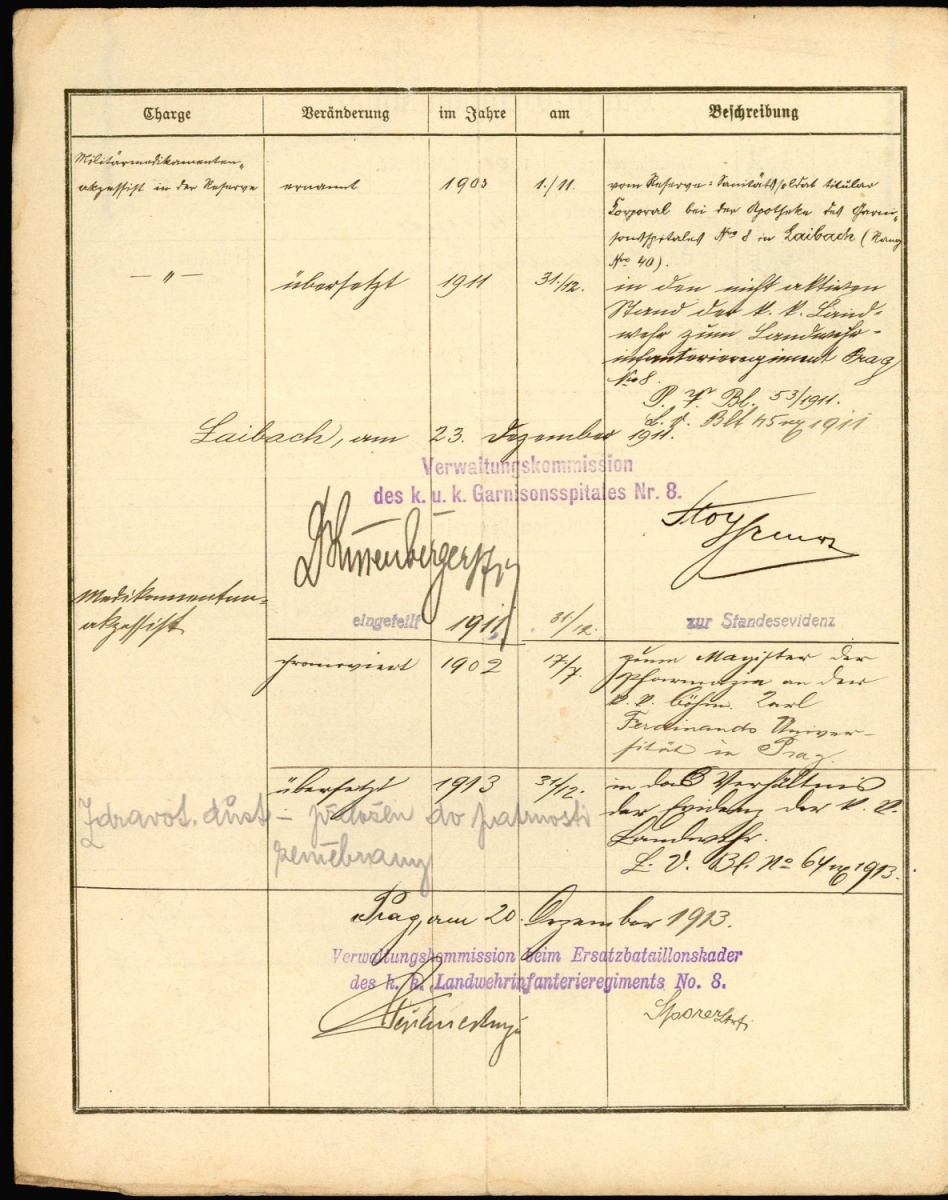 Charge Veränderung im Jahre am Beschreibung
Militärmedikamenten-
akzessist in der Reserve ernannt 1903 1./11. vom Reserve-Sanitätssoldat titular
Korporal bei der Apotheke des Garni-
sonsspitales Nro 8 in Laibach (Rang
Nro 40).
— " — übersetzt 1911 31./12. in den nicht aktiven
Stand der k. k. Land-
wehr zum Landwehr-
infanterieregiment Prag
Nro 8.
P. V. Bl. 53/1911.
L. V. Blt 45 ex 1911
Laibach, am 23. Dezember 1911.
Verwaltungskommission
des k. u. k. Garnisonsspitales Nr. 8.
Medikamenten-
akzessist eingeteilt 1911 31/12. zur Standesevidenz
promoviert 1902 17./7. zum Magister der
Pharmazie an der
k. k. böhm. Karl
Ferdinands Univer-
sität in Prag.
übersetzt 1913 31/12. in das Verhältnis
der Evidenz der k. k.
Landwehr.
L. V. Bl. No 64 ex 1913.
Zdravot. důst – přeložen do patrnosti
zeměbrany
Prag, am 20. Dezember 1913.
Verwaltungskommission beim Ersatzbataillonskader
des k. k. Landwehrinfanterieregiments No. 8.
Sporer